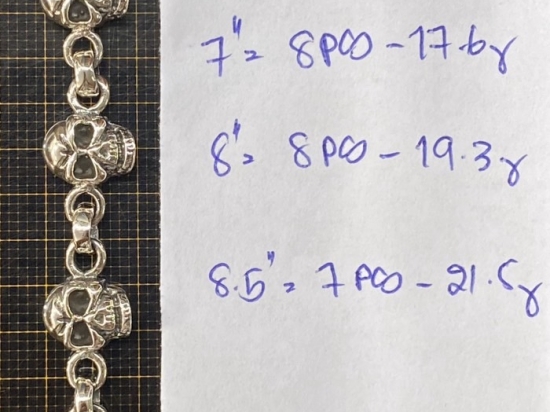 7" = 8 pcs - 17.6g
8" = 8 pcs - 19.3g
8.5" = 7 pcs - 21.5g